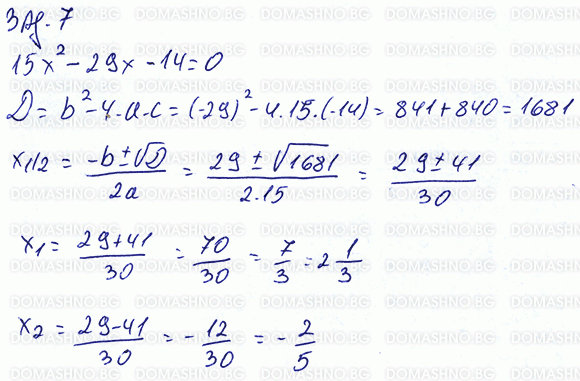 Зад. 7
15x² - 29x - 14 = 0
D = b² - 4.a.c = (-29)² - 4.15.(-14) = 841 + 840 = 1681
x₁/₂ = (-b ± √D)/2a = (29 ± √1681)/2.15 = (29 ± 41)/30
x₁ = (29+41)/30 = 70/30 = 7/3 = 2 1/3
x₂ = (29-41)/30 = -12/30 = -2/5